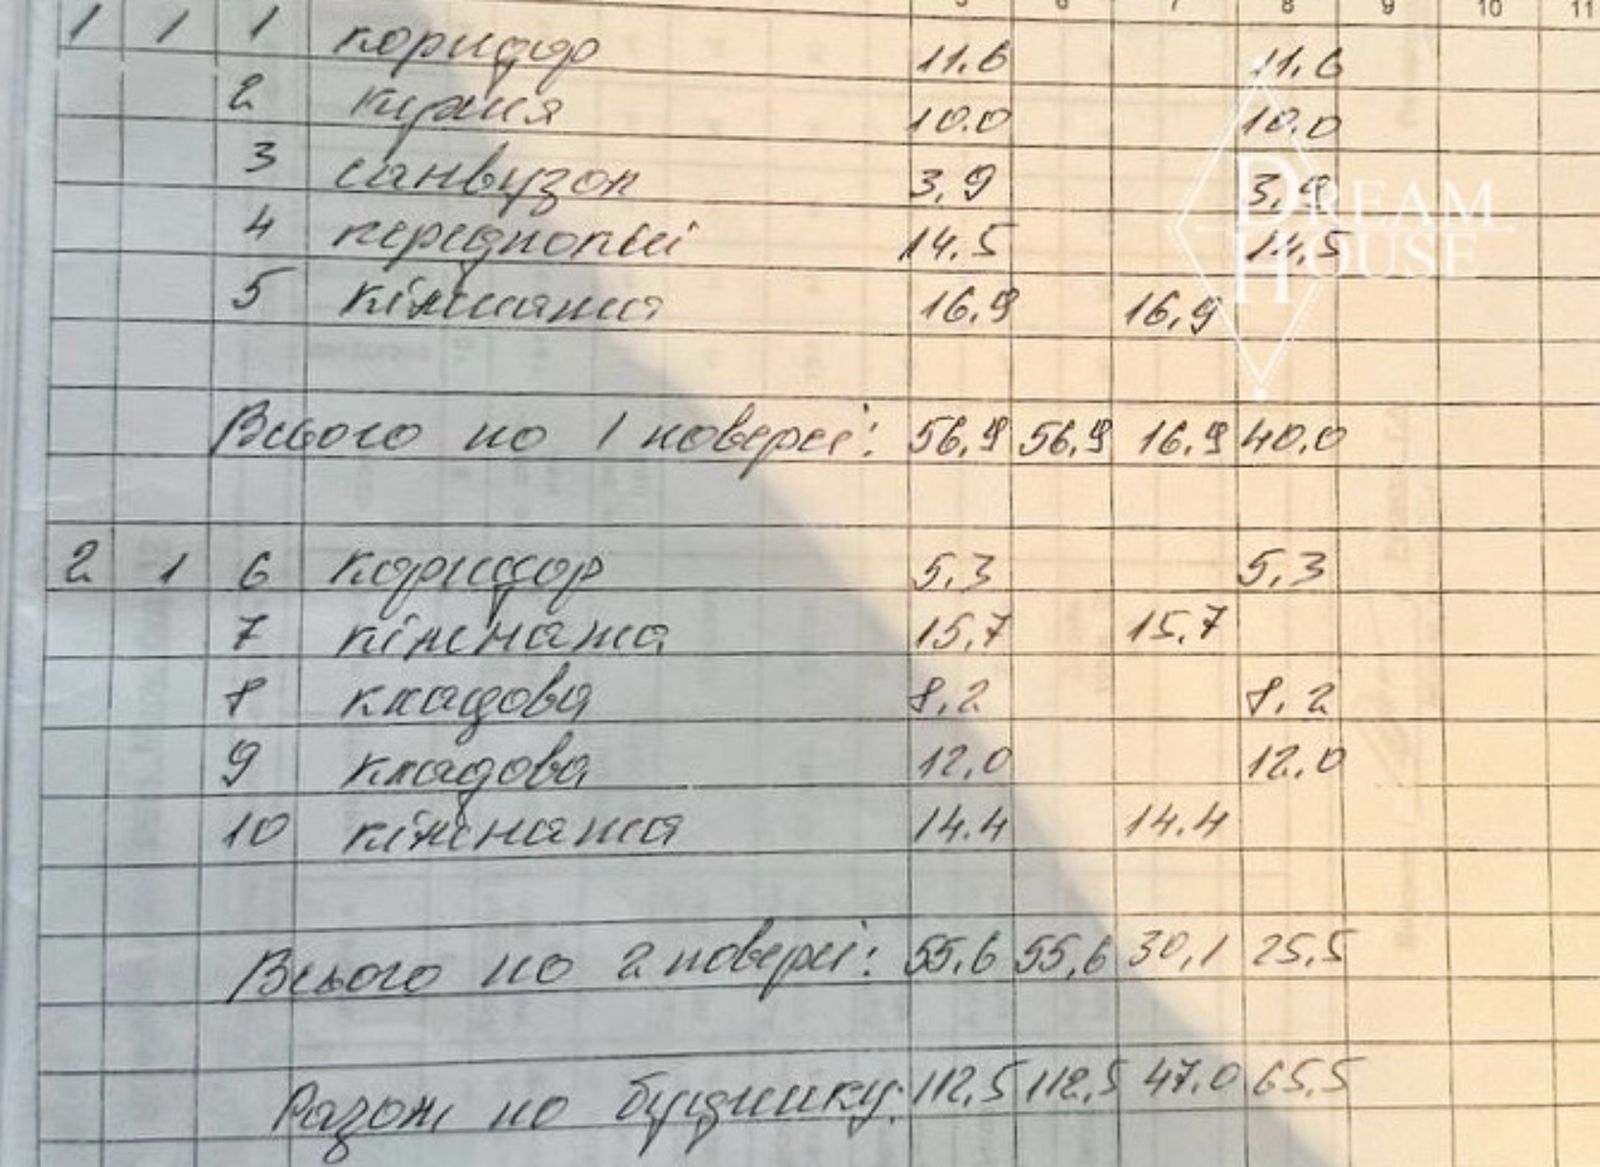 5 6 7 8 9 10 11
1 1 1 коридор 11.6 11.6
2 кухня 10.0 10.0
3 санвузол 3,9 3,9
4 передпокій 14.5 14,5
5 кімната 16.9 16,9
Всього по 1 поверсі: 56,9 56,9 16.9 40.0
2 1 6 коридор 5.3 5,3
7 кімната 15.7 15.7
8 кладова 8.2 8.2
9 кладова 12.0 12.0
10 кімната 14.4 14.4
Всього по 2 поверсі: 55,6 55,6 30,1 25,5
Разом по будинку: 112,5 112,5 47.0 65.5
DREAM
HOUSE